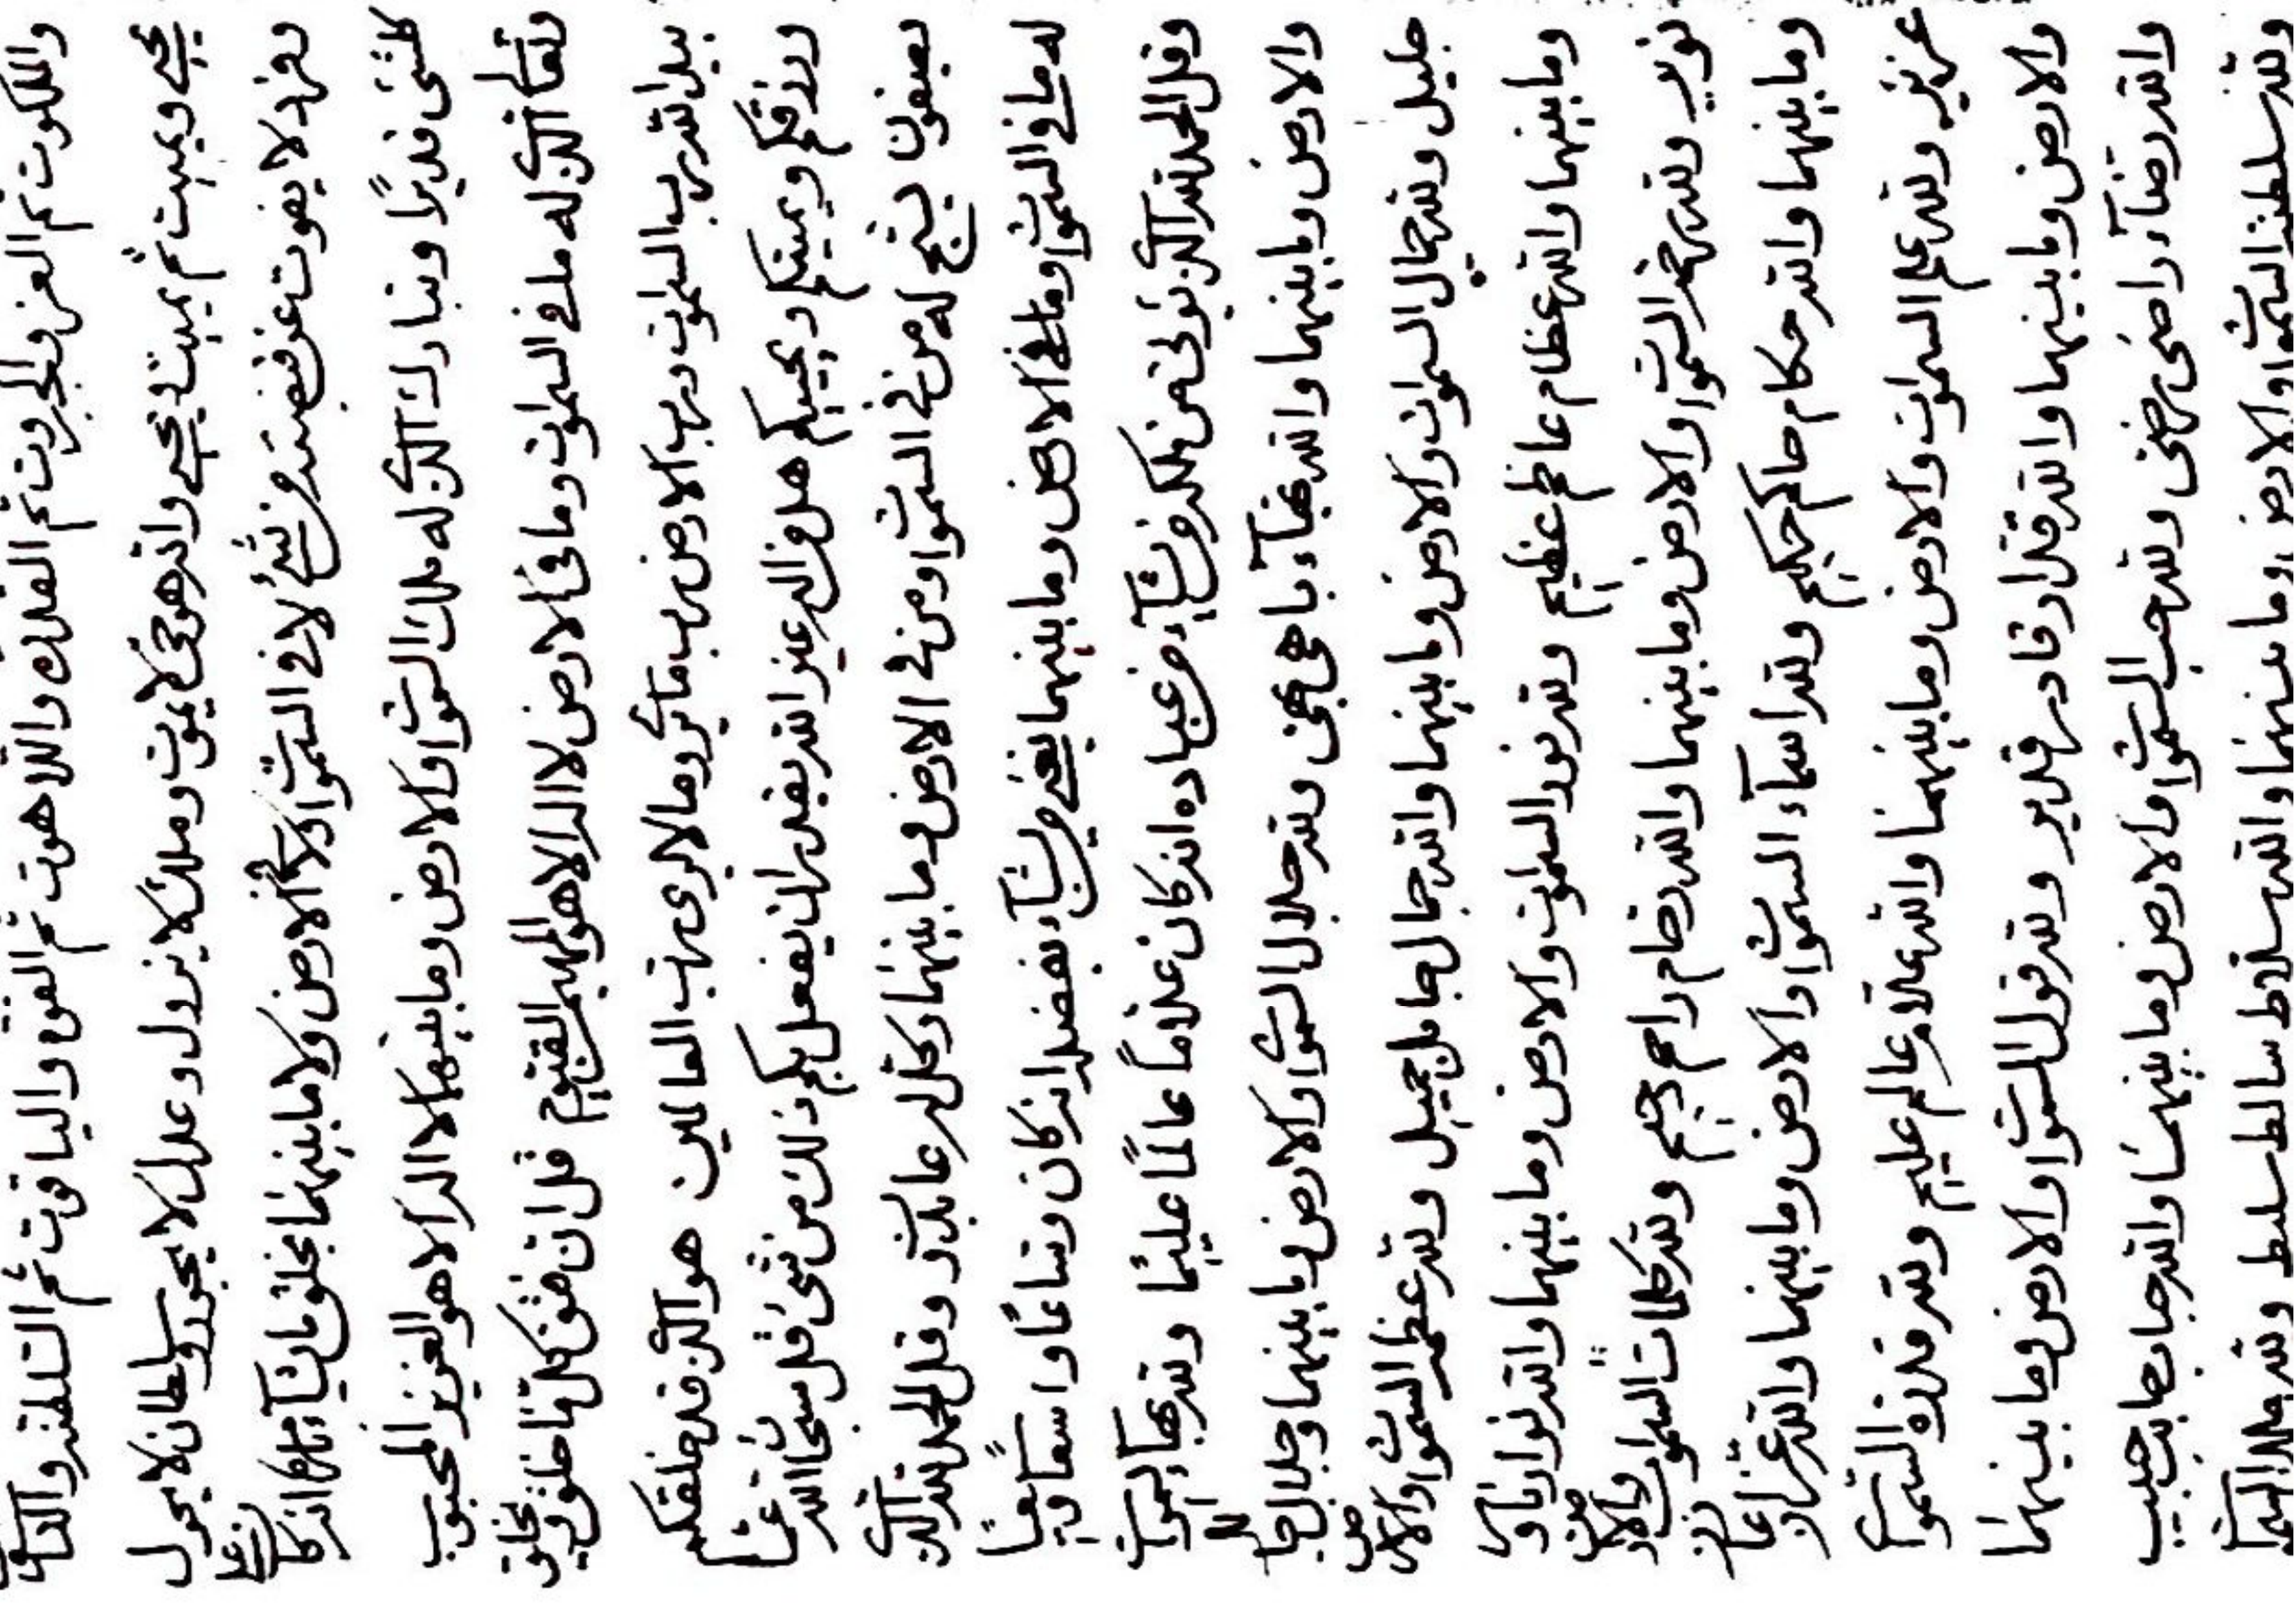 والملكوت ثم العز والجبروت ثم القدرة واللاهوت ثم القوة والياقوت ثم السلطنة والناسوت
يحيي ويميت ثم يميت ويحيي وانه هو حي لا يموت وملك لا يزول وعدل لا يجور وسلطان لا يحول
وفرد لا يفوت عن قبضته من شئ لا في السموات ولا في الارض ولا ما بينهما يخلق ما يشآء بامره انه كان على
كلشئ قديرًا وتبارك الذي له ملك السموات والارض وما بينهما لا اله الا هو العزيز المحبوب
وتعالى الذي له ما في السموات وما في الارض لا اله الا هو المهيمن القيوم قل ان فوق كل ما خلق ويخلق
بيد الله رب السموات ورب الارض رب ما يرى وما لا يرى رب العالمين هو الذي قد خلقكم
ورزقكم ويميتكم ويحييكم هل من اله غير الله يقدر ان يفعل بكم ذلك من شئ قل سبحان الله عما
يصفون يسبح له من في السموات ومن في الارض وما بينهما وكل له عابدون وقل الحمد لله الذي
له ما في السموات وما في الارض وما بينهما يغني من يشآء بفضله انه كان وساعًا واسعًا وسيعًا
وقل الحمد لله الذي يؤتي من ملكه من يشآء من عباده انه كان علامًا عالمًا عليمًا ولله بهآء السموات
والارض وما بينهما والله بهآء باهي بهي ولله جلال السموات والارض وما بينهما وجلال جالل
جليل ولله جمال السموات والارض وما بينهما والله جمال جامل جميل ولله عظمة السموات والارض
وما بينهما والله عظام عاظم عظيم ولله نور السموات والارض وما بينهما والله نوار ناور
نوير ولله رحمة السموات والارض وما بينهما والله رحام راحم رحيم ولله كلمات السموات والارض
وما بينهما والله حكام حاكم حكيم ولله اسمآء السموات والارض وما بينهما والله عزاز عازز
عزيز ولله علم السموات والارض وما بينهما والله علام عالم عليم ولله قدرة السموات
والارض وما بينهما والله قدار قادر قدير ولله قول السموات والارض وما بينهما
والله رضآء راضي رضي ولله حب السموات والارض وما بينهما والله حباب حابب حبيب
ولله سلطنة السموات والارض وما بينهما والله سلاط سالط سليط ولله ملك السموات